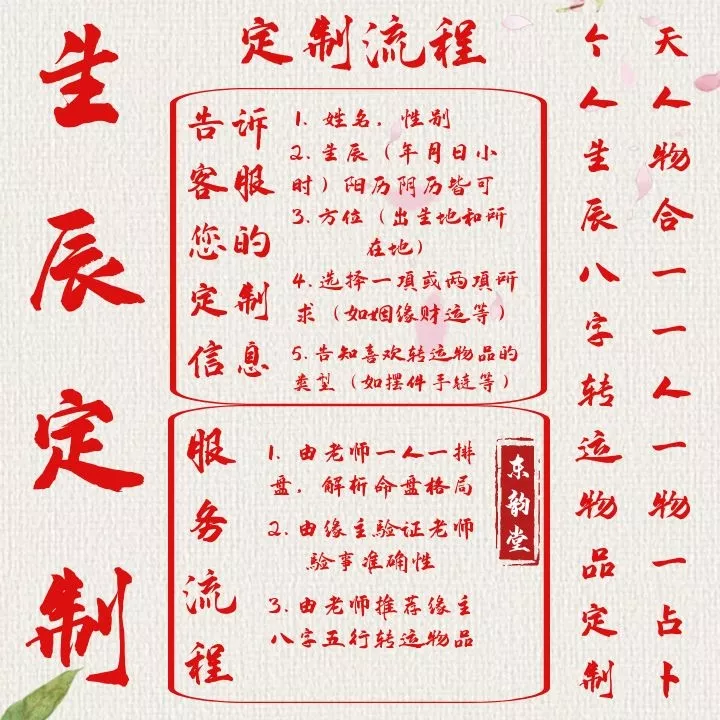 生辰定制
定制流程
告诉
客服
您的
定制
信息
1. 姓名，性别
2. 生辰（年月日小
时）阳历阴历皆可
3. 方位（出生地和所
在地）
4. 选择一項或两項所
求（如姻缘财运等）
5. 告知喜欢转运物品的
类型（如摆件手链等）
服务流程
1. 由老师一人一排
盘，解析命盘格局
2. 由缘主验证老师
验事准确性
3. 由老师推荐缘主
八字五行转运物品
东韵堂
个人生辰八字转运物品定制
天人物合一一人一物一占卜